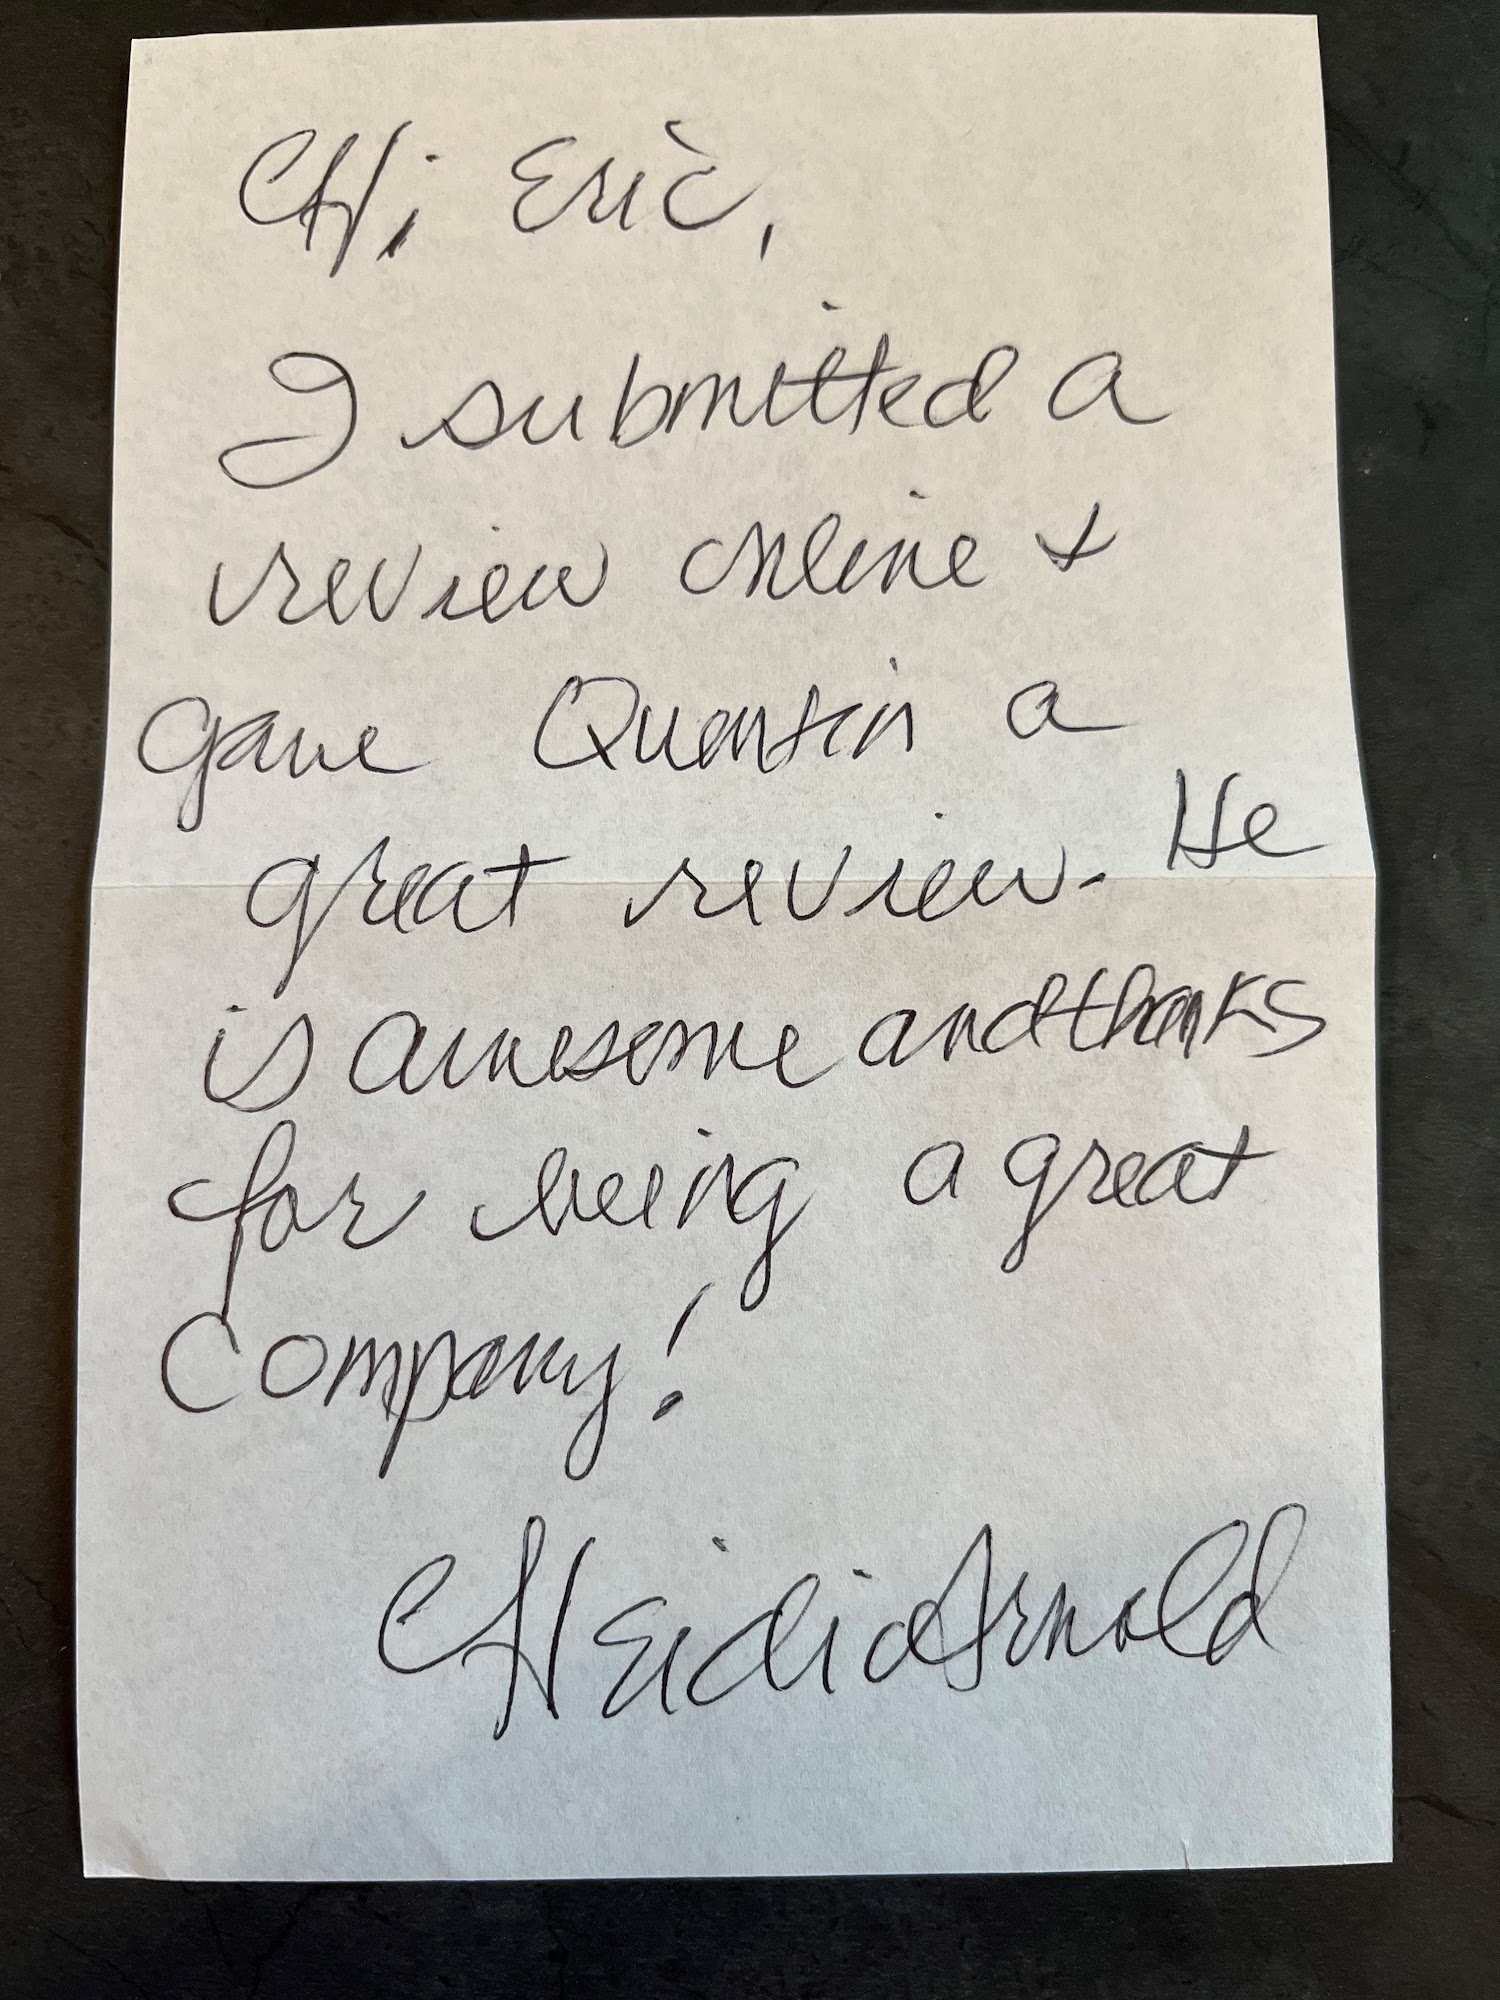 Hi Eric,
I submitted a
review online +
gave Quentin a
great review. He
is awesome and thanks
for being a great
Company!
Heidi Arnold